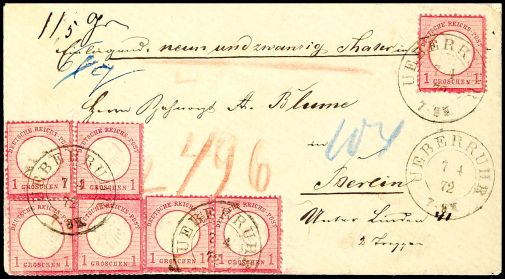 11,5 Gr
Einliegend neun und zwanzig Thaler
Herrn A. Blume
104
496
in
Berlin
Unter Linden 41
2 Treppen
DEUTSCHE REICHS-POST
1 GROSCHEN 1
UEBERRUHR
7 4
72
7-8N
UEBERRUHR
7 4
72
7-8N
DEUTSCHE REICHS-POST
1 GROSCHEN 1
DEUTSCHE REICHS-POST
1 GROSCHEN 1
UEBERRUHR
7 4
72
DEUTSCHE REICHS-POST
1 GROSCHEN 1
DEUTSCHE REICHS-POST
1 GROSCHEN 1
DEUTSCHE REICHS-POST
1 GROSCHEN 1
DEUTSCHE REICHS-POST
1 GROSCHEN 1
UEBERRUHR